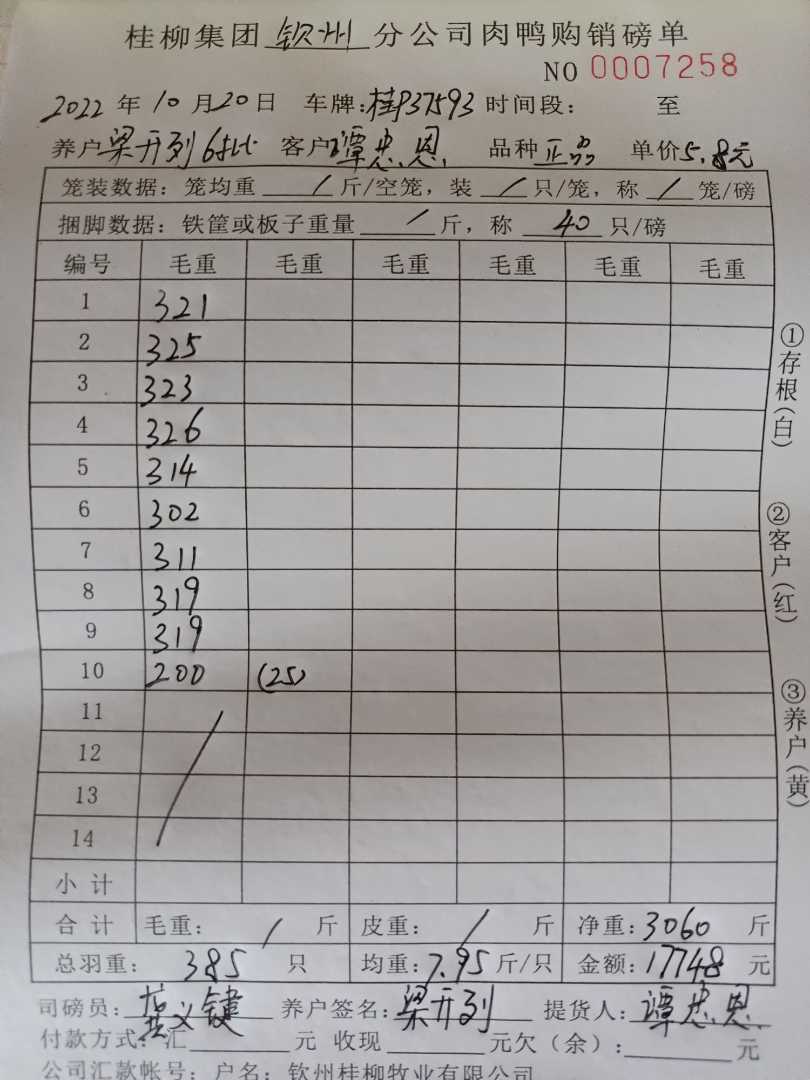 桂柳集团 钦州 分公司肉鸭购销磅单
NO 0007258
2022 年 10 月 20 日 车牌:桂P37593 时间段: 至
养户 梁开列 客户 谭忠恩 品种 正品 单价 5.8元
笼装数据: 笼均重 / 斤/空笼, 装 / 只/笼, 称 / 笼/磅
捆脚数据: 铁筐或板子重量 / 斤, 称 40 只/磅
编号 毛重 毛重 毛重 毛重 毛重 毛重
1 321
2 325
3 323
4 326
5 314
6 302
7 311
8 319
9 319
10 200 (25)
11
12
13
14
小计
合计 毛重: / 斤 皮重: / 斤 净重: 3060 斤
总羽重: 385 只 均重: 7.95 斤/只 金额: 17748 元
司磅员: 义键 养户签名: 梁开列 提货人: 谭忠恩
付款方式: 汇 元 收现 元欠(余): 元
公司汇款帐号: 户名: 钦州桂柳牧业有限公司
①存根(白)
②客户(红)
③养户(黄)